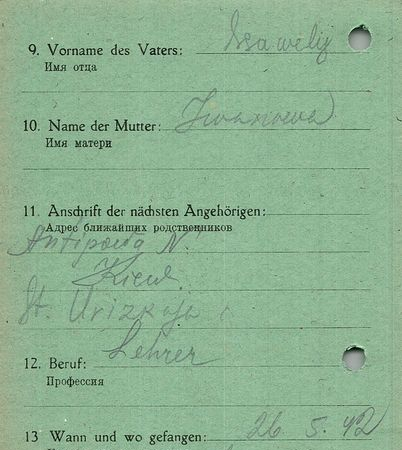 9. Vorname des Vaters: Isawely
Имя отца
10. Name der Mutter: Iwanowa
Имя матери
11. Anschrift der nächsten Angehörigen:
Адрес ближайших родственников
N.
Kiew
St. Urizkaja
12. Beruf: Lehrer
Профессия
13 Wann und wo gefangen: 26. 5. 42